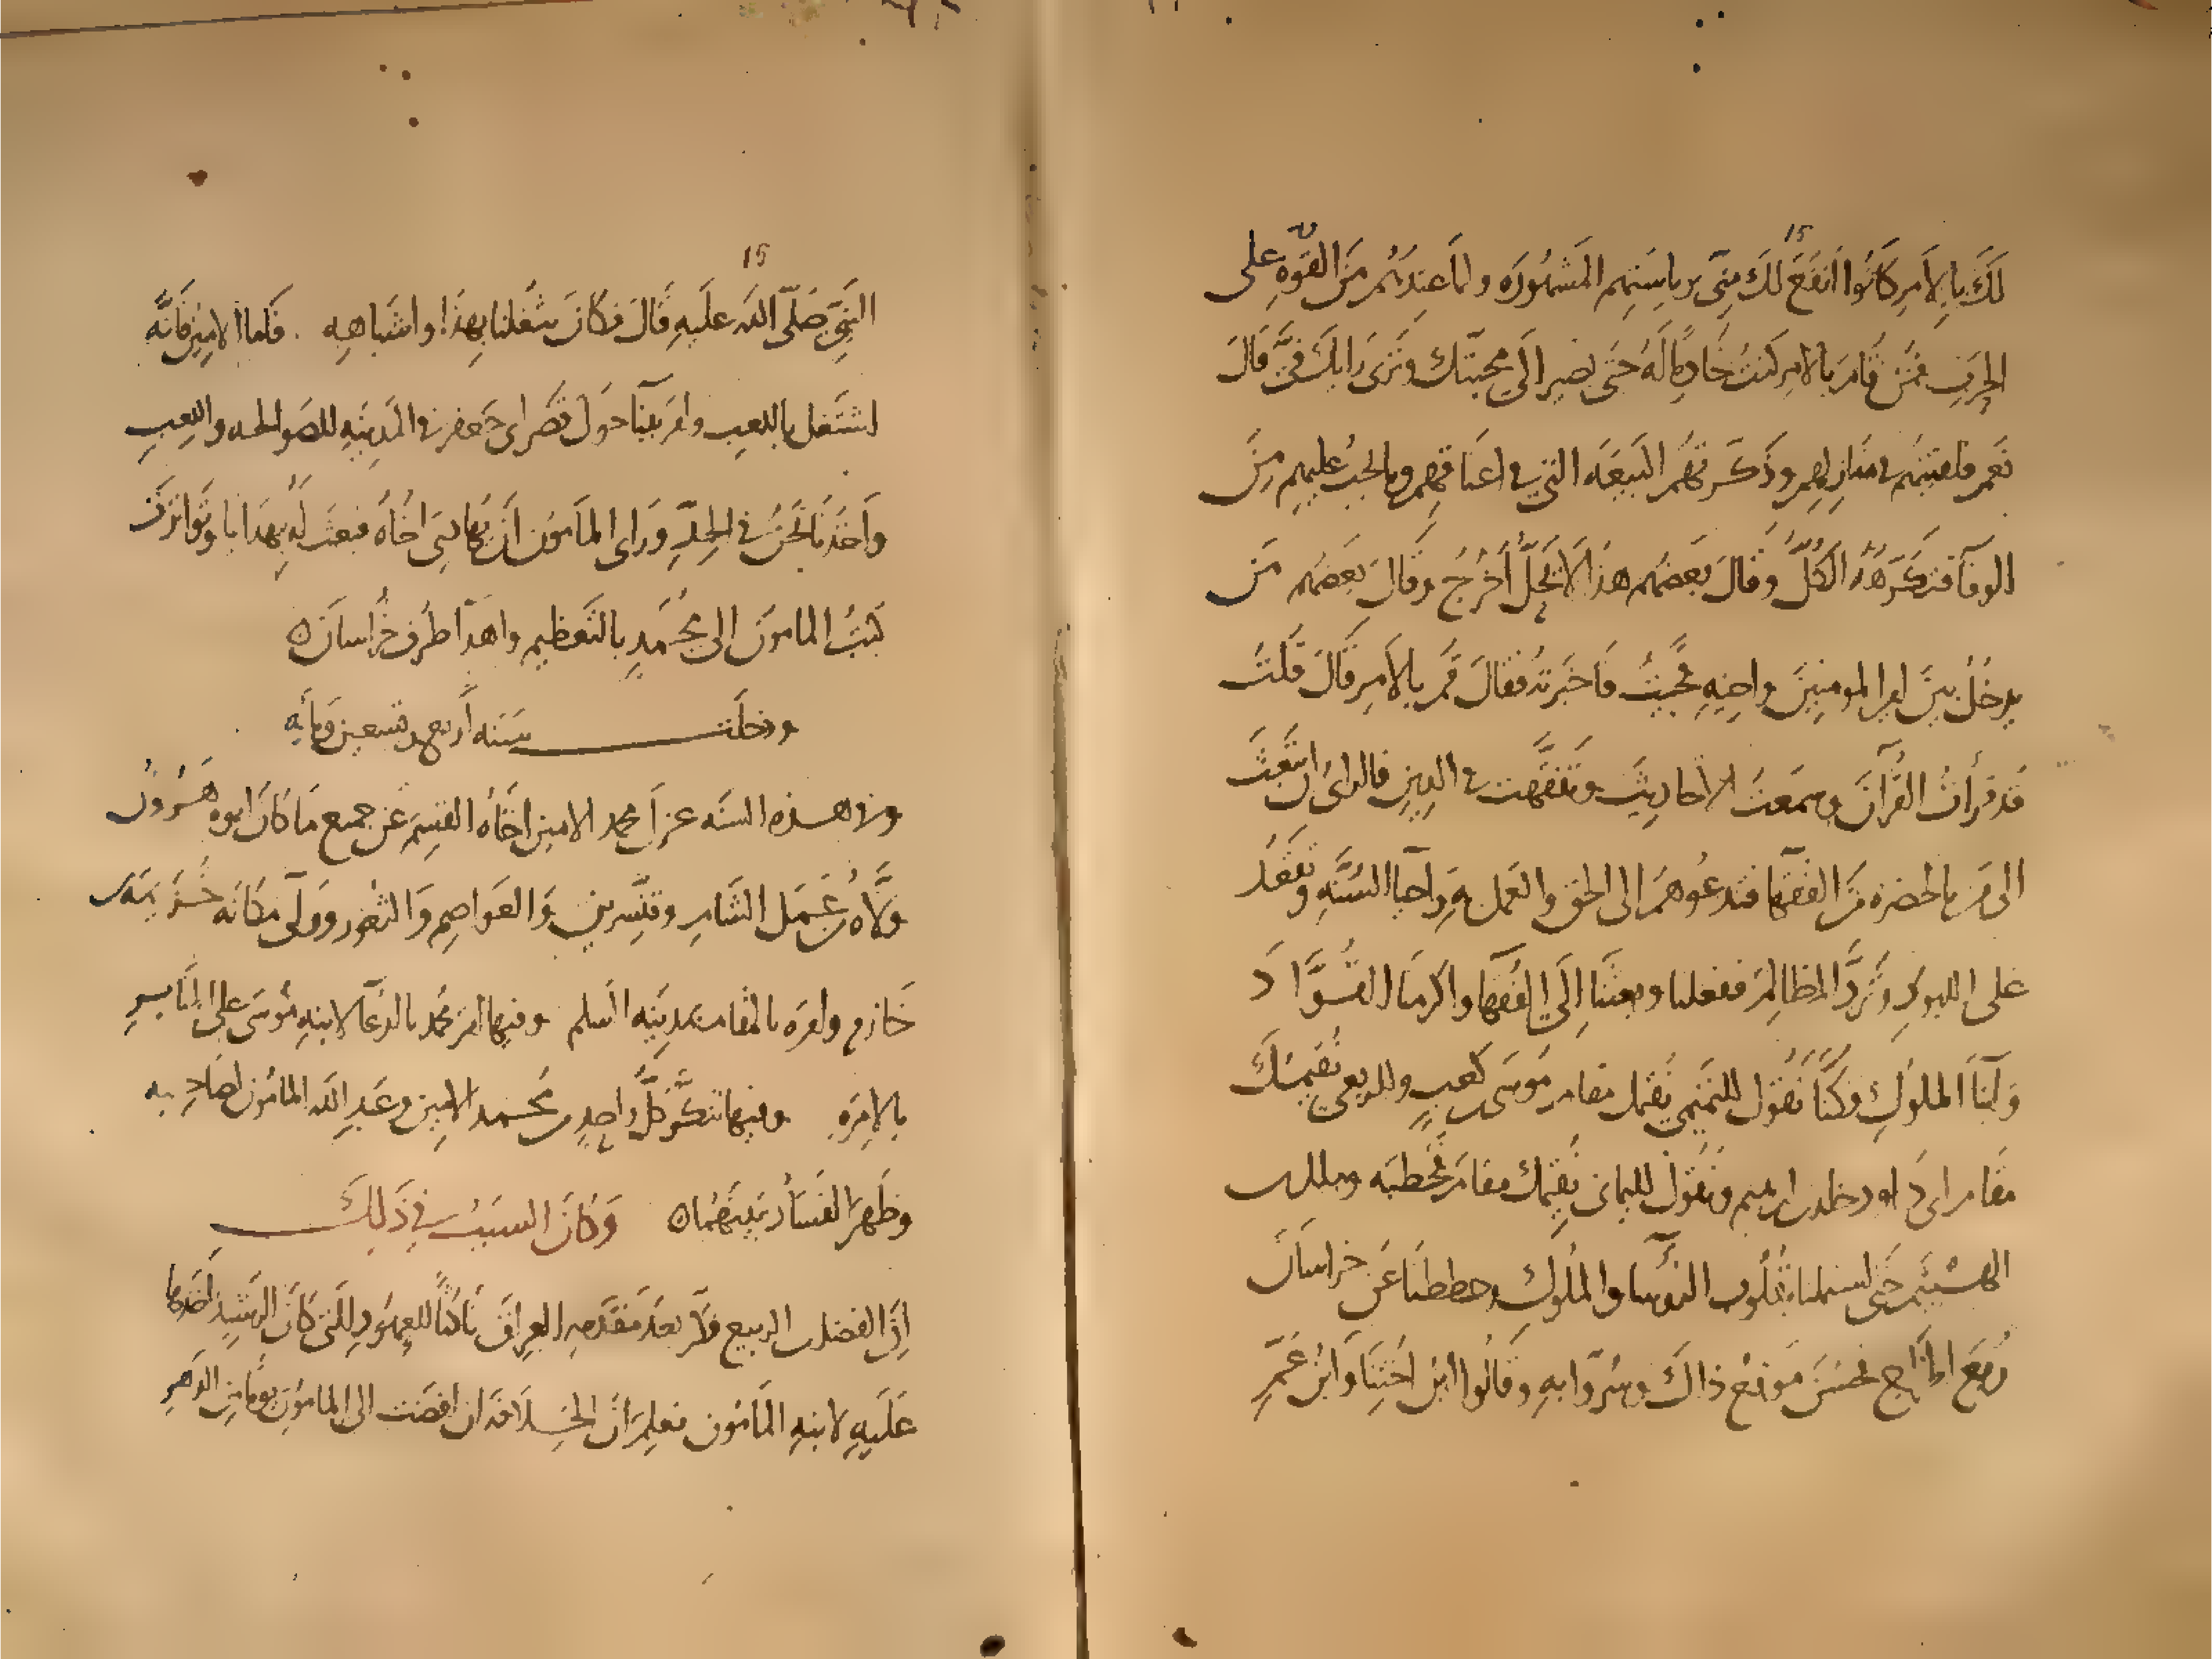 15
لَكَ بالاَمرِ كَانُوا اَنفَعَ لَكَ مِنّي برياستهم المشهُورَه ولما عندَهُم مِنَ القوّهِ على
الحَربِ فمَن قَامَ بالامرِ كنتُ خَادِمًا لَهُ حَتى نصيرَ الَى محبتك وتَرى رَايكَ فيَّ قَالَ
نعم فلقيتهُم في منازلهم وذكرتهُم البيعَه التي في اعناقهم وما يجبُ عليهم مِنَ
الوفآ
الكُلّ وقالَ بَعضهُم هذا لا يَحِلُّ أخرُج وقالَ بعضُهُم مَن
يدخُل بينَ امير المومنينَ واخيهِ فجيتُ فاخبرتهُ فقالَ قُم بالاَمرِ قالَ قلتُ
قد قرأتَ القُرآنَ وسمعتَ الاحاديثَ وتفقهت في الدينِ فالرايُ ان تبعَثَ
الى من بالحضره مِنَ الفقهآ فتدعُوهم الى الحق والعَمل بهِ واحيا السُنَّهِ وتقعُدَ
على اللبودِ وتَردَّ المظالم ففعلنا وبعثنَا اِلَى الفُقهَا واكرمنَا القُوَّادَ
وَابنآ الملوُكِ وكُنَّا نَقُول للتميمي نُقيمك مقام موسَى بن كعبٍ وللربعي نُقيمُكَ
مقَام ابى دَاود خلد بن ابرهيم ونقُول لليمانى نُقيمك مقامَ قحطبَه ومالك بن
الهيثم حَتى استملنا قُلُوب الرُوَسا والملُوك وحططنا عَن خراسانَ
رُبعَ الخراج فحسُنَ مَوقعُ ذالكَ وسُرّوا بهِ وقَالُوا ابنُ اُختنَا وَابنُ عَمِّ
15
النبيّ صَلّى الله علَيهِ قَالَ فكانَ شغلنا بهذا واشباهِهِ . فاما الامينُ فَانَّه
اشتغل باللعب وامر ببنآ حَول قَصر ابى جَعفر في المَدينَهِ للصَوالجه واللعِب
وَاخَذنا نَحنُ في الجِدّ وَراى المأمونُ ان يُهادىَ اخَاهُ فبعَث لهُ بهدايا وتَواترَت
كتبُ المامون الى مُحمدٍ بالتعظيم واهدا طُرف خُراسانَ ه
ودخلَت سَنَه أربع وتسعينَ ومأيه
وفى هذه السنه عزل محمد الامين اخَاه القسِمَ عَن جميع مَا كانَ ابوه هَرُونُ
وَلَّاه من عَمَل الشَام وقنّسرينَ وَالعَواصِم وَالثغور ووَلّى مكانه خُزَيمَه بن
خَازم وامَره بالمقام بمدينَه السلم وفيها امر محمد بالدعآ لابنهِ مُوسَى على المنَابرِ
بالامرَهِ وفيها تنكّرَ كلّ واحِدٍ من مُحَمد الامِين وعَبدِ الله المامُون لصَاحبه
وظَهر الفسَادُ بَينهُمَا ه وَكانَ السبَبُ في ذَلِكَ
اَنّ الفضل بن الربيع فكّر بعدَ مَقدَمهِ العِراق نَاكثًا للعهُودِ التى كانَ الرشيدُ اخذها
عَلَيهِ لابنهِ المأمُون فعلِمَ اَنّ الخلَافه ان افضَت الى المامُونِ يَومًا مِن الدَهرِ